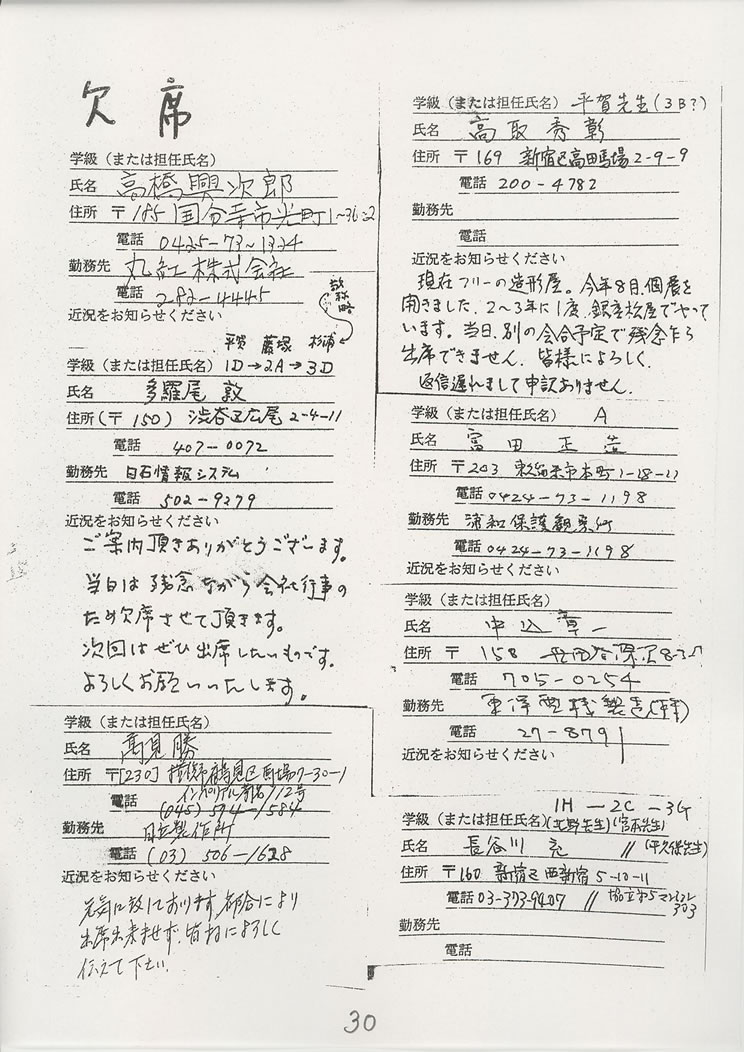 欠席
学級（または担任氏名）
氏名 高橋興次郎
住所 〒185 国分寺市光町1~36-2
電話 0425-73-1324
勤務先 丸紅株式会社
電話 282-4445
近況をお知らせください
敬称略
平賀 藤塚 杉浦
学級（または担任氏名） 1D→2A→3D
氏名 多羅尾 敦
住所（〒150） 渋谷区広尾2-4-11
電話 407-0072
勤務先 白石情報システム
電話 502-9279
近況をお知らせください
ご案内頂きありがとうございます。
当日は残念ながら会社行事の
ため欠席させて頂きます。
次回はぜひ出席したいものです。
よろしくお願いいたします。
学級（または担任氏名）
氏名 高見勝
住所 〒[230] 横浜市鶴見区馬場7-30-1
112号
電話 (045) 574-1584
勤務先 日立製作所
電話 (03) 506-1628
近況をお知らせください
元気に致しております。都合により
出席出来ませず、皆様によろしく
伝えて下さい。
学級（または担任氏名） 平賀先生(3B?)
氏名 高取秀彰
住所 〒169 新宿区高田馬場2-9-9
電話 200-4782
勤務先
電話
近況をお知らせください
現在フリーの造形屋。今年8月、個展を
開きました。2~3年に1度、銀座松屋でやって
います。当日、別の会合予定で残念乍ら
出席できません。皆様によろしく。
返信遅れまして申訳ありません。
学級（または担任氏名） A
氏名 富田 正
住所 〒203 東久留米市本町1-18-11
電話 0424-73-1198
勤務先 浦和保護観察所
電話 0424-73-1198
近況をお知らせください
学級（または担任氏名）
氏名 中込章一
住所 〒158 世田谷深沢8-3-
電話 705-0254
勤務先
電話 27-8791
近況をお知らせください
1H-2C-3G
学級（または担任氏名）(北野先生)(宮本先生)
氏名 長谷川 亮 〃 (平久保先生)
住所 〒160 新宿区西新宿5-10-11
電話 03-373-9407 〃
303
勤務先
電話
30